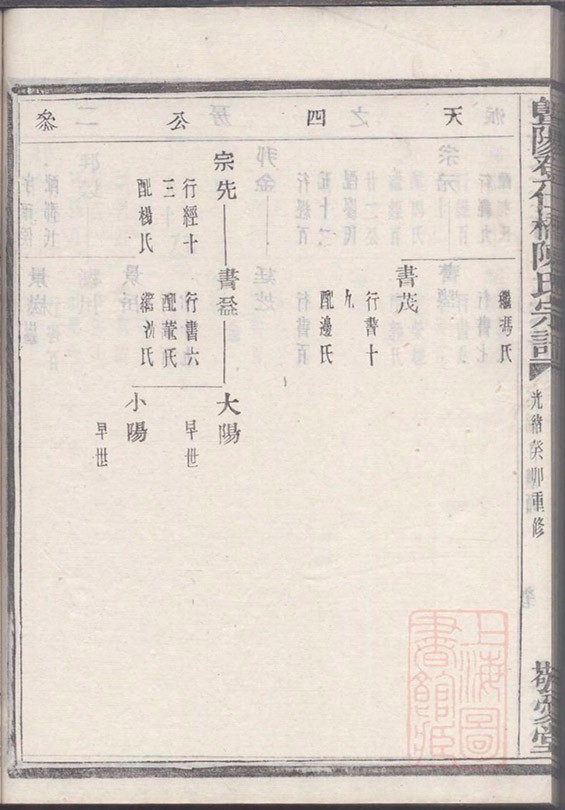 暨陽
陳氏宗譜
光緒癸卯重修
敬愛堂
天四公叅
繼馮氏
書茂
行書十
九
配邊氏
宗先
行經十
三
配楊氏
書益
行書六
配董氏
氏
大陽
早世
小陽
早世
上海圖
書館藏